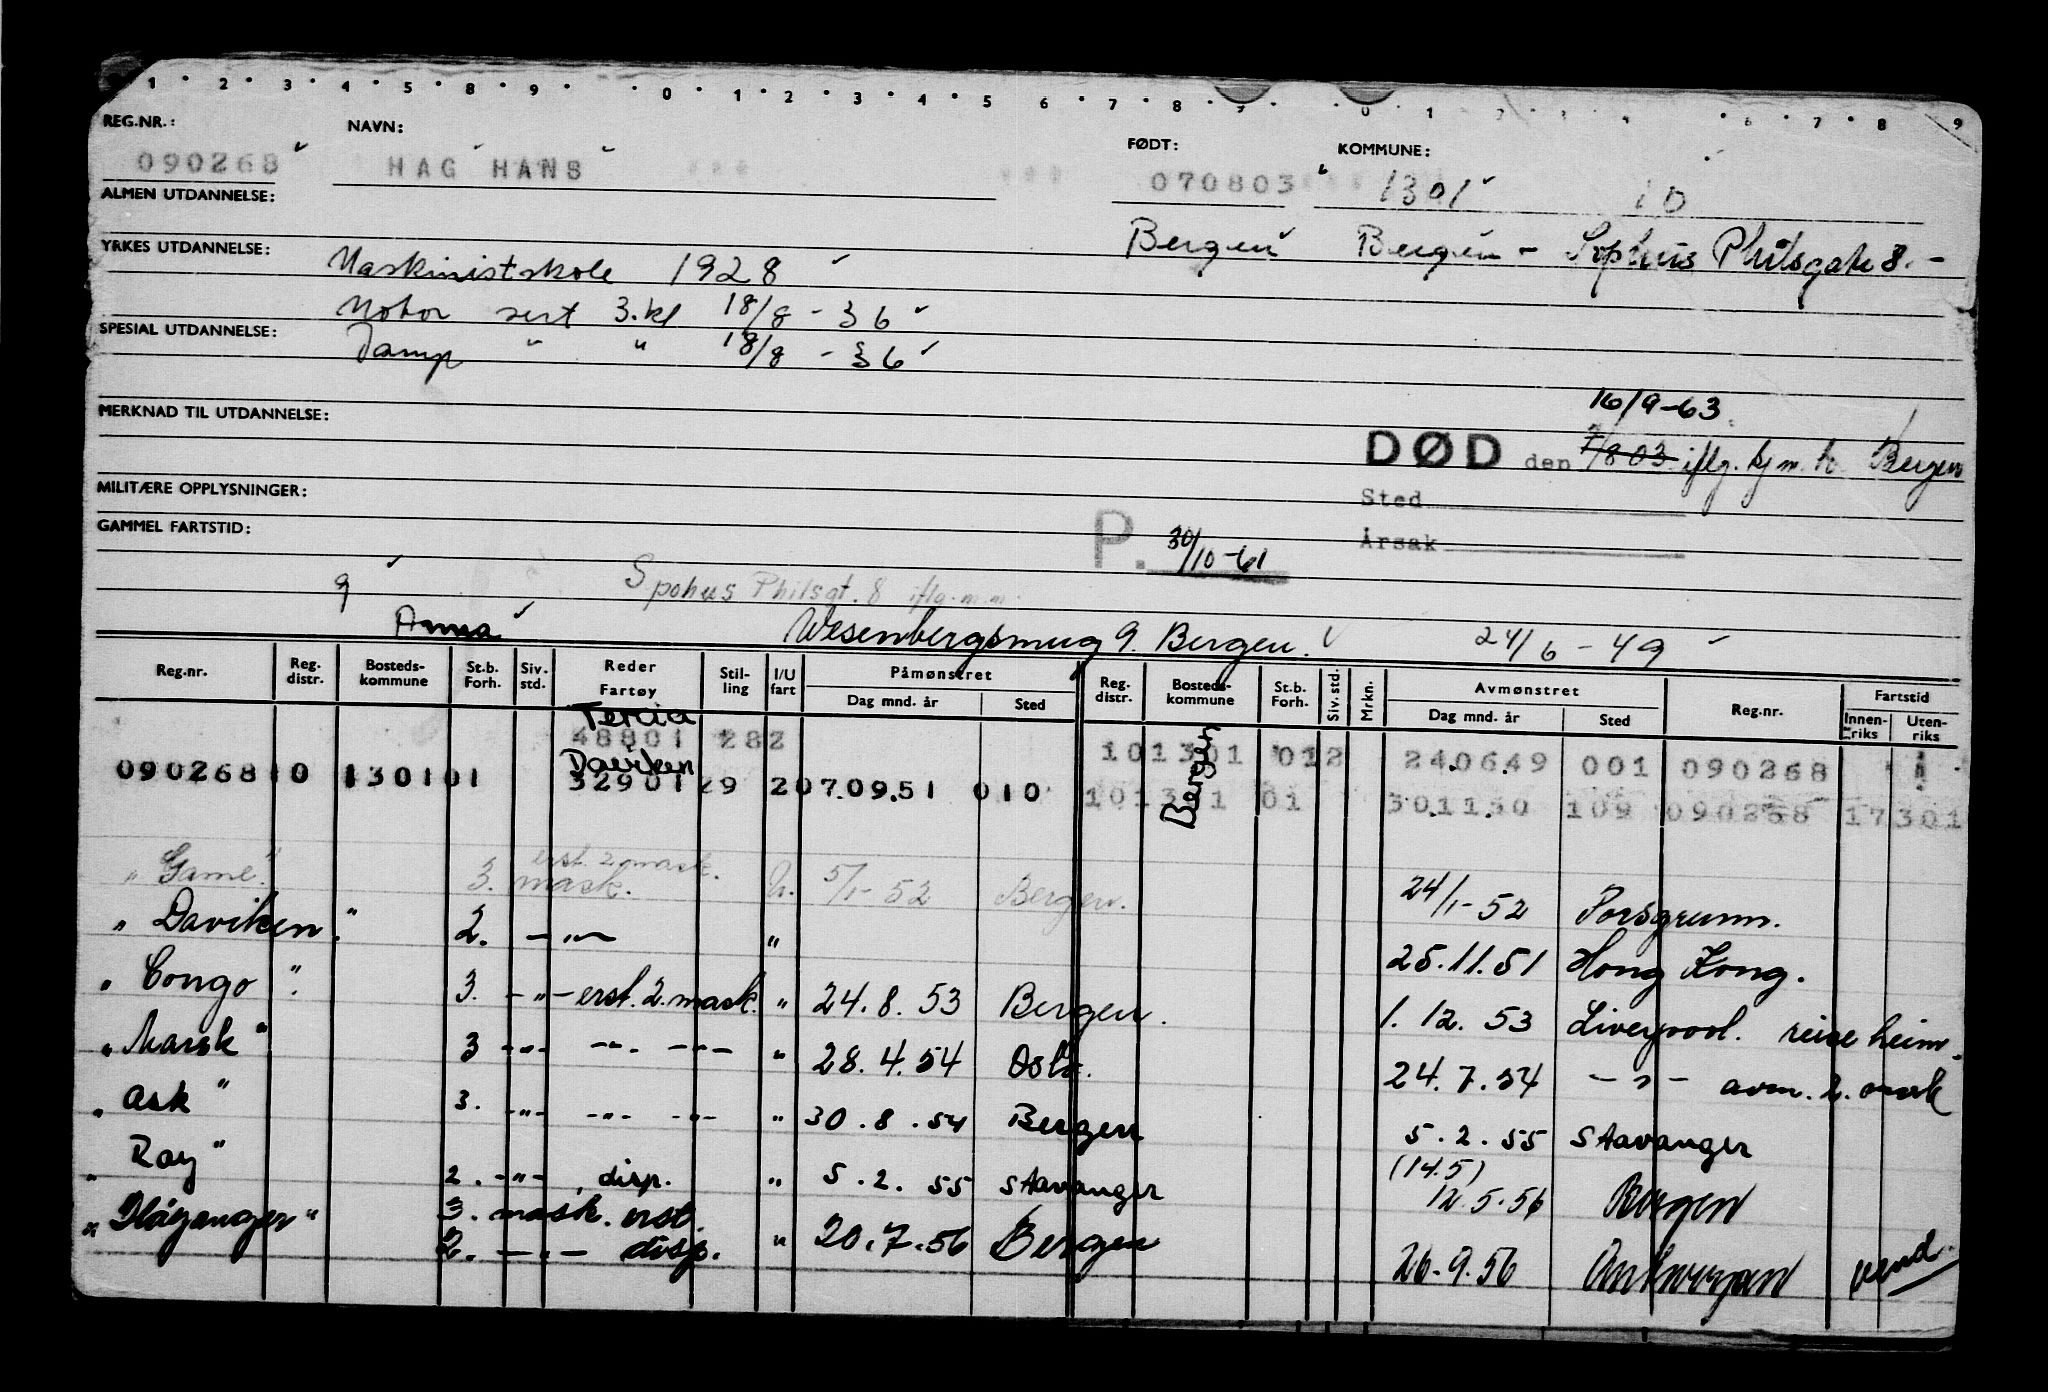 1 2 3 4 5 8 9 0 1 2 3 4 5 6 7 8 9 0 1 6 7 8 9
REG.NR.: NAVN: FØDT: KOMMUNE:
090268 HAG HANS 070803 1301 10
ALMEN UTDANNELSE:
Bergen Bergen - Sophus Philsgate 8. -
YRKES UTDANNELSE: Maskinistskole 1928
Motor sert 3. kl 18/8 - 36
SPESIAL UTDANNELSE: Damp " " 18/8 - 36
16/9-63.
MERKNAD TIL UTDANNELSE:
DØD den 7/8 03 iflg. kj m. k. Bergen
MILITÆRE OPPLYSNINGER: Sted
GAMMEL FARTSTID: P. 30/10-61 Årsak
g Spohus Philsgt. 8 iflg. m.m.
Anna Wesenbergsmug 9. Bergen. 24/6 - 49
Reg.nr. Reg. distr. Bosteds-kommune St.b. Forh. Siv. std. Reder Fartøy Stil-ling I/U fart Påmønstret Dag mnd. år Sted Reg. distr. Bosteds-kommune St.b. Forh. Siv. std. Mrkn. Avmønstret Dag mnd. år Sted Reg.nr. Fartstid Innen-riks Uten-riks
Tercia
48801 282 101301 012 240649 001 090268
Daviken Bergen
090268 10 1301 01 32901 29 2 07.09.51 010 101301 01 301150 109 090268 17301
erst. 2 mask.
"Game" 3. mask. U. 5/1-52 Bergen. 24/1-52 Porsgrunn.
"Daviken" 2. - " - " 25.11.51 Hong Kong.
"Congo" 3. - " - erst. 2. mask. " 24.8.53 Bergen. 1.12.53 Liverpool. reise heim.
"Marsk" 3 - " - - " - - " - " 28.4.54 Oslo. 24.7.54 - " - avm. 2. mask
"Ask" 3. - " - - " - - " - " 30.8.54 Bergen 5.2.55 Stavanger
(14.5)
"Roy" 2. - " - disp. " 5.2.55 Stavanger 12.5.56 Bergen
"Høyanger" 3. mask. erst.
2. - " - disp. " 20.7.56 Bergen 26.9.56 Antwerpen vend